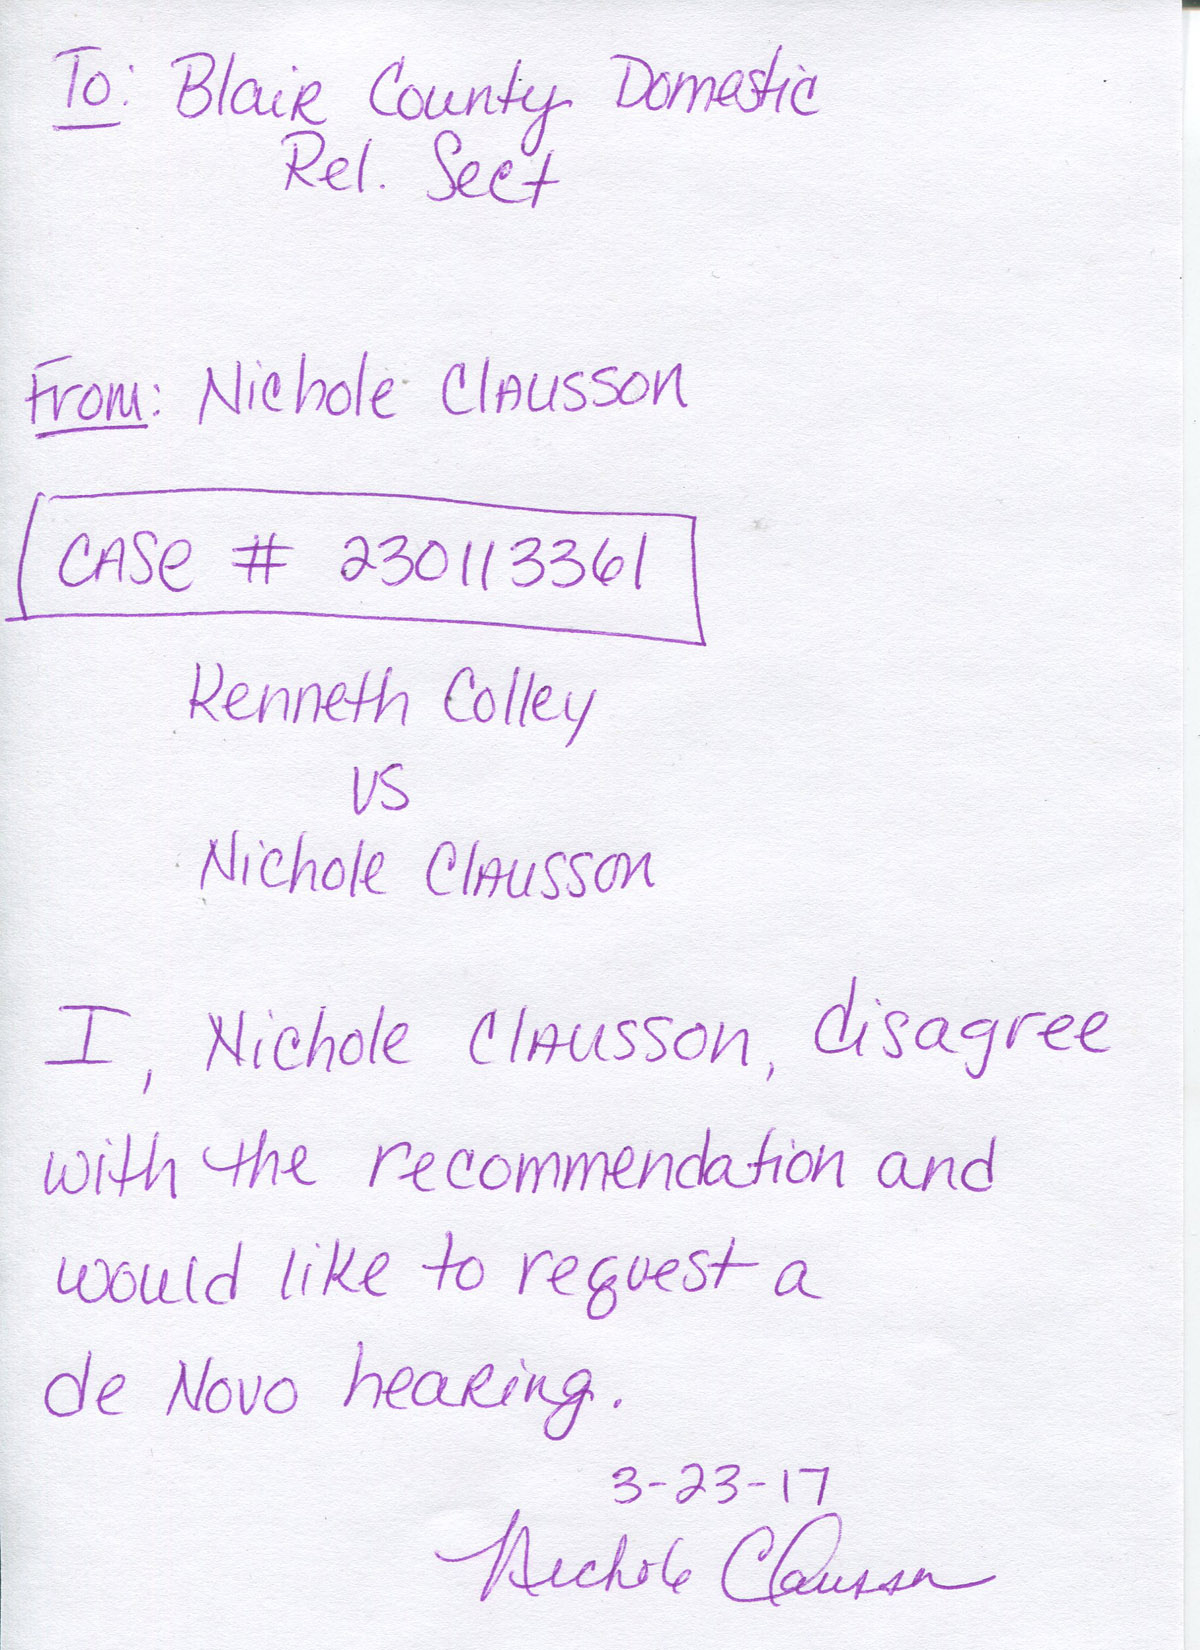 To: Blair County Domestic
Rel. Sect
From: Nichole Clausson
Case # 230113361
Kenneth Colley
vs
Nichole Clausson
I, Nichole Clausson, disagree
with the recommendation and
would like to request a
de Novo hearing.
3-23-17
Nichole Clausson